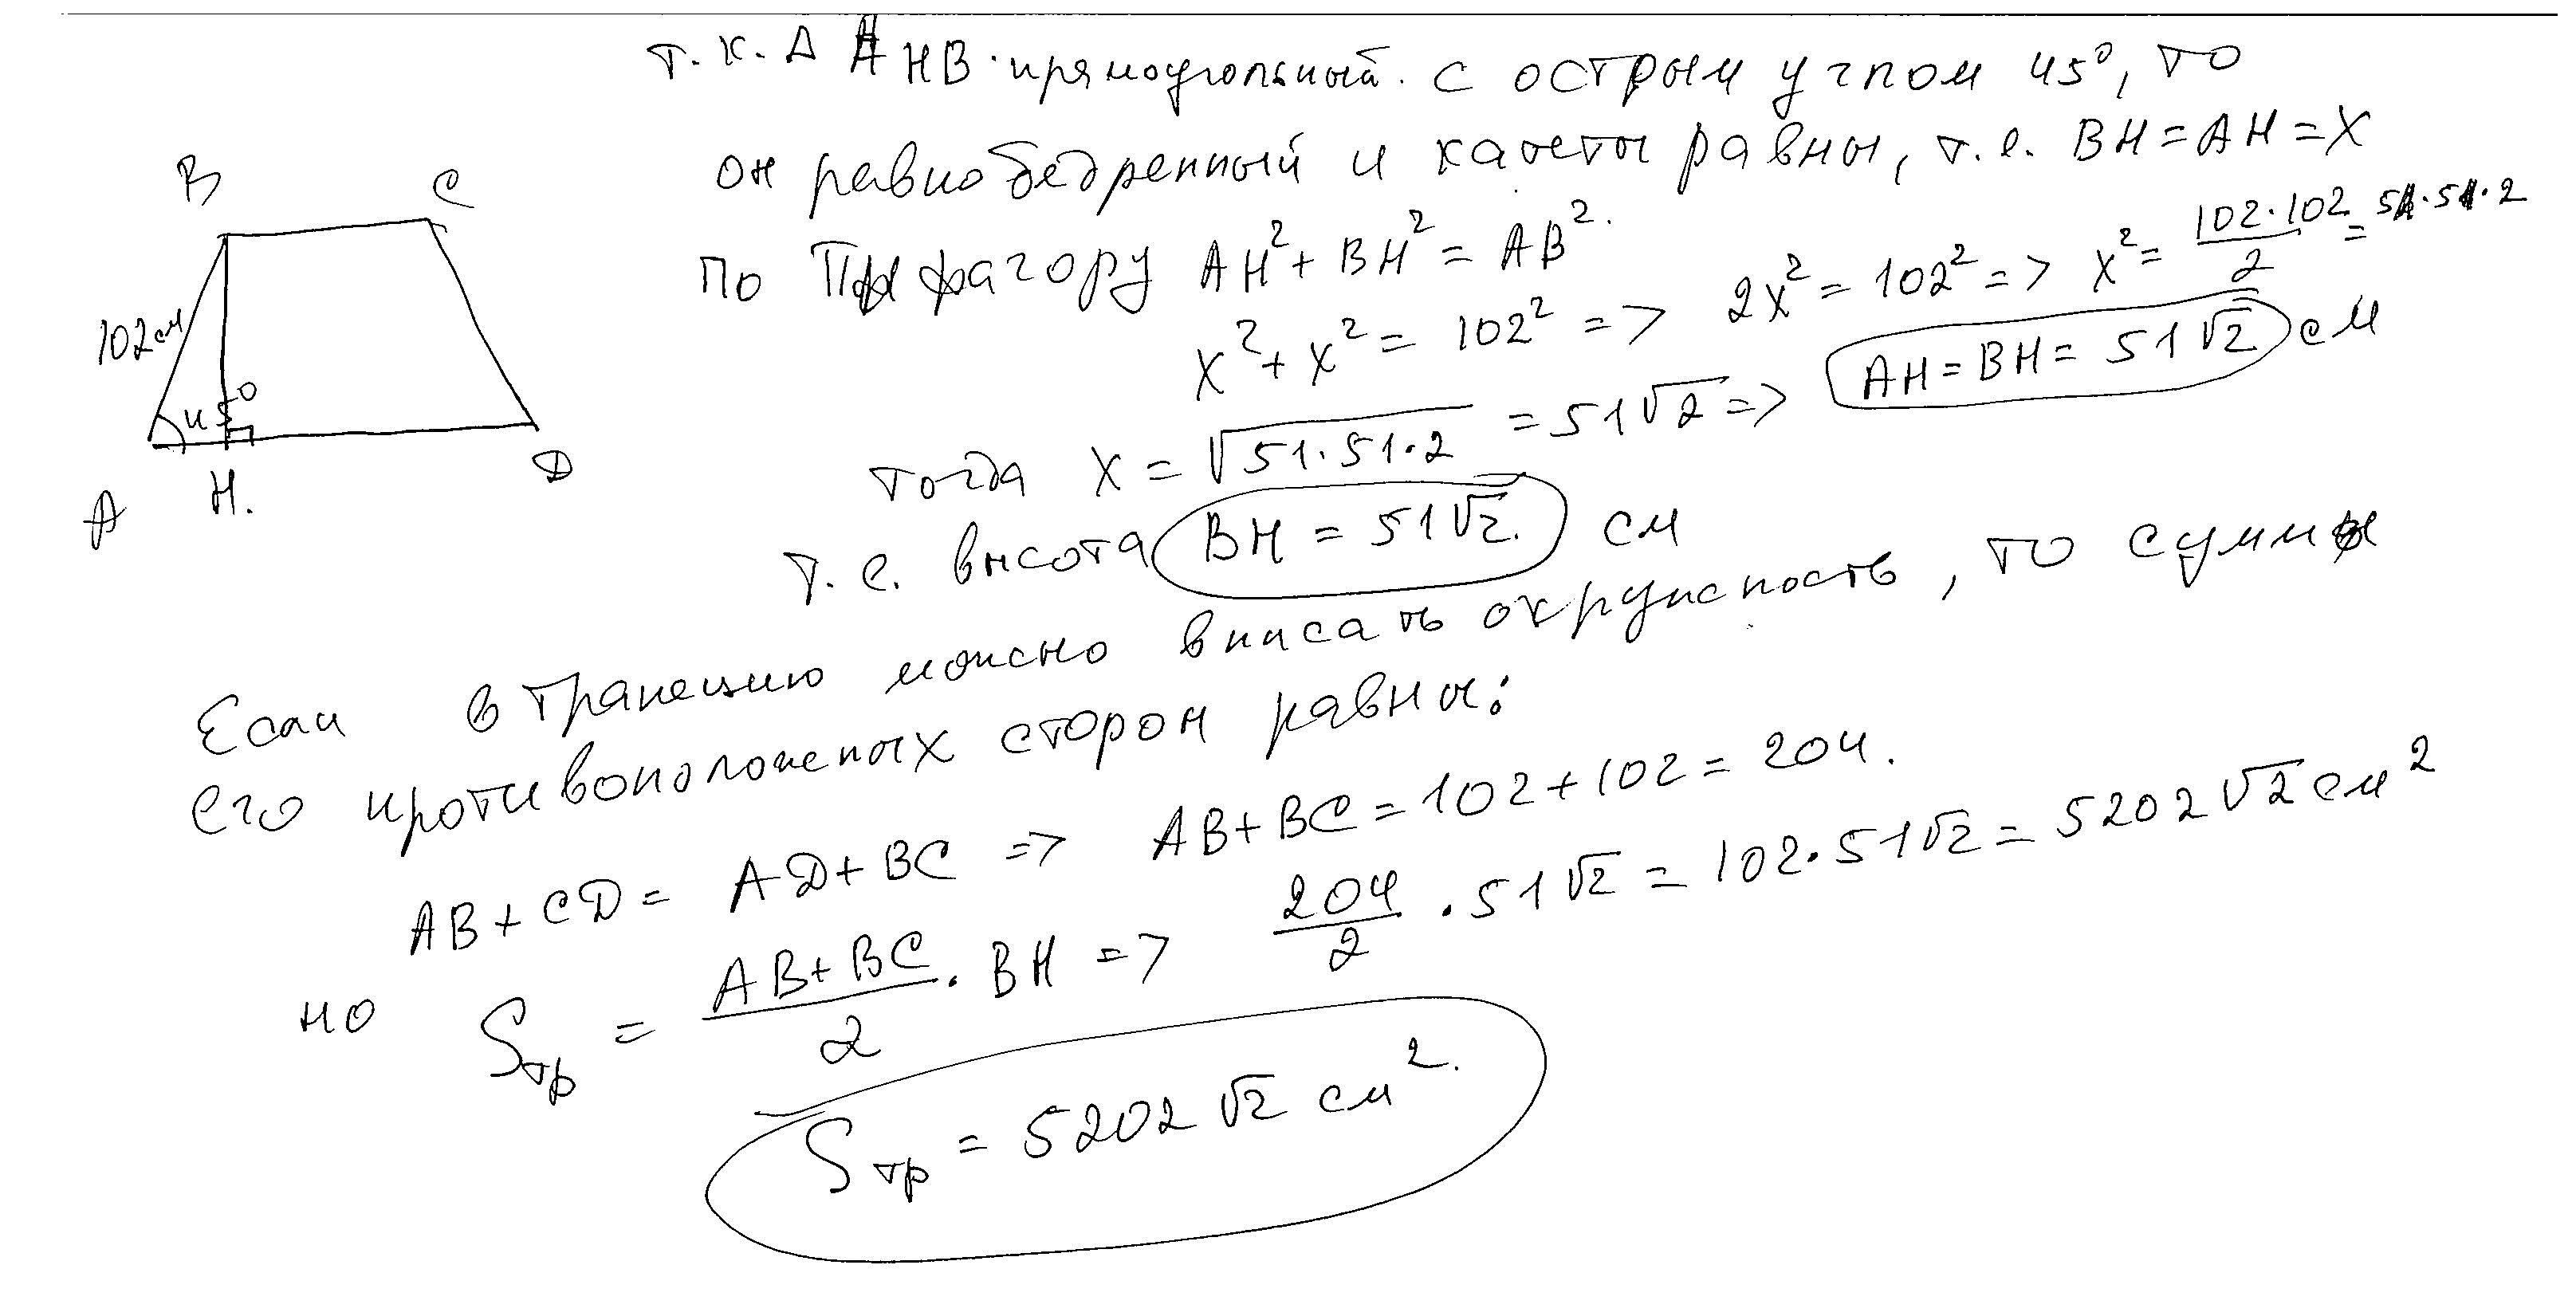 т.к. Δ AHB прямоугольный с острым углом 45°, то
он равнобедренный и катеты равны, т.е. BH = AH = X
По Пифагору AH² + BH² = AB².
X² + X² = 102² => 2X² = 102² => X² = 102·102/2 = 51·51·2
тогда X = √51·51·2 = 51√2 => AH = BH = 51√2 см
т.е. высота BH = 51√2. см
B C
102 см
45°
A H. D
Если в трапецию можно вписать окружность, то суммы
его противоположных сторон равны:
AB + CD = AD + BC => AB + BC = 102 + 102 = 204.
но Sтр = AB + BC/2 · BH => 204/2 · 51√2 = 102·51√2 = 5202√2 см²
Sтр = 5202√2 см².